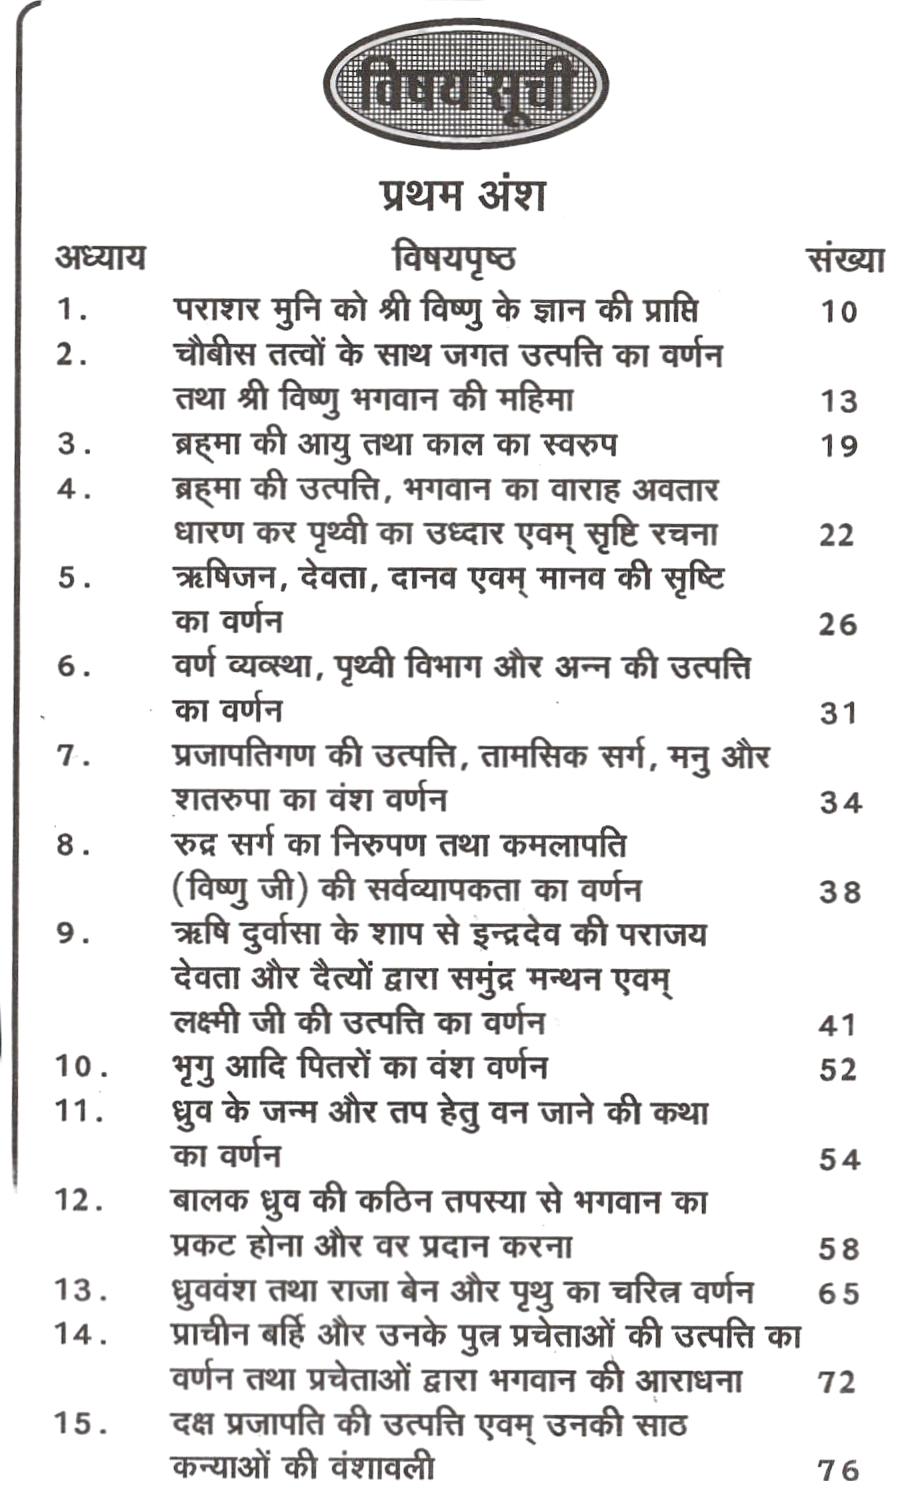 विषय सूची
प्रथम अंश
अध्याय विषयपृष्ठ संख्या
1. पराशर मुनि को श्री विष्णु के ज्ञान की प्राप्ति 10
2. चौबीस तत्वों के साथ जगत उत्पत्ति का वर्णन
तथा श्री विष्णु भगवान की महिमा 13
3. ब्रह्मा की आयु तथा काल का स्वरुप 19
4. ब्रह्मा की उत्पत्ति, भगवान का वाराह अवतार
धारण कर पृथ्वी का उध्दार एवम् सृष्टि रचना 22
5. ऋषिजन, देवता, दानव एवम् मानव की सृष्टि
का वर्णन 26
6. वर्ण व्यव्स्था, पृथ्वी विभाग और अन्न की उत्पत्ति
का वर्णन 31
7. प्रजापतिगण की उत्पत्ति, तामसिक सर्ग, मनु और
शतरुपा का वंश वर्णन 34
8. रुद्र सर्ग का निरुपण तथा कमलापति
(विष्णु जी) की सर्वव्यापकता का वर्णन 38
9. ऋषि दुर्वासा के शाप से इन्द्रदेव की पराजय
देवता और दैत्यों द्वारा समुंद्र मन्थन एवम्
लक्ष्मी जी की उत्पत्ति का वर्णन 41
10. भृगु आदि पितरों का वंश वर्णन 52
11. ध्रुव के जन्म और तप हेतु वन जाने की कथा
का वर्णन 54
12. बालक ध्रुव की कठिन तपस्या से भगवान का
प्रकट होना और वर प्रदान करना 58
13. ध्रुववंश तथा राजा बेन और पृथु का चरित्र वर्णन 65
14. प्राचीन बर्हि और उनके पुत्र प्रचेताओं की उत्पत्ति का
वर्णन तथा प्रचेताओं द्वारा भगवान की आराधना 72
15. दक्ष प्रजापति की उत्पत्ति एवम् उनकी साठ
कन्याओं की वंशावली 76